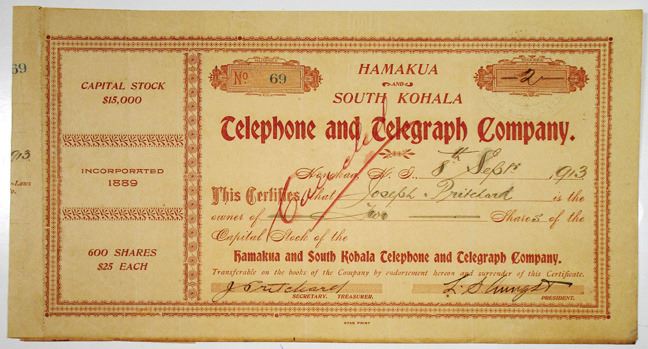 69
913
-Laws
CAPITAL STOCK
$15,000
INCORPORATED
1889
600 SHARES
$25 EACH
No. 69
HAMAKUA
AND
SOUTH KOHALA
—2—
Telephone and Telegraph Company.
H. T. 8th Sept. 1913
This Certifies that Joseph Pritchard is the
owner of Two Shares of the
Capital Stock of the
Hamakua and South Kohala Telephone and Telegraph Company.
Transferable on the books of the Company by endorsement hereon and surrender of this Certificate.
J Pritchard
SECRETARY. TREASURER.
PRESIDENT.
STAR PRINT